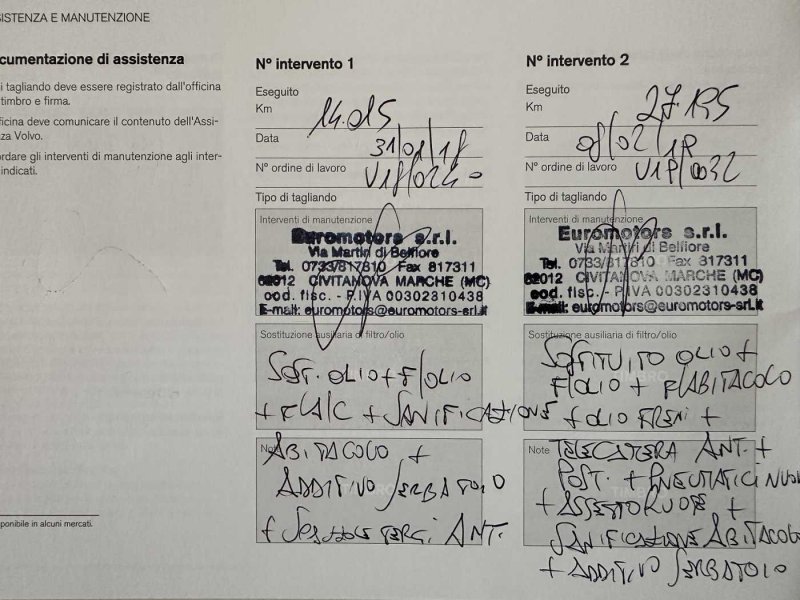 SISTENZA E MANUTENZIONE
cumentazione di assistenza
i tagliando deve essere registrato dall'officina
timbro e firma.
fficina deve comunicare il contenuto dell'Assi-
za Volvo.
ordare gli interventi di manutenzione agli inter-
indicati.
ponibile in alcuni mercati.
N° intervento 1
Eseguito
Km 14.015
Data 31/01/18
N° ordine di lavoro
Tipo di tagliando
Interventi di manutenzione
Euromotors s.r.l.
Via Martiri di Belfiore
Tel. 0733/817810 Fax 817311
62012 CIVITANOVA MARCHE (MC)
cod. fisc. - P.IVA 00302310438
E-mail: euromotors@euromotors-srl.it
Sostituzione ausiliaria di filtro/olio
SOST. OLIO + F/OLIO
+ F/A/C + SANIFICAZIONE
Note
ABITACOLO +
ADDITIVO SERBATOIO
+ TERGI ANT.
N° intervento 2
Eseguito
Km 27.195
Data
N° ordine di lavoro
Tipo di tagliando
Interventi di manutenzione
Euromotors s.r.l.
Via Martiri di Belfiore
Tel. 0733/817810 Fax 817311
62012 CIVITANOVA MARCHE (MC)
cod. fisc. - P.IVA 00302310438
E-mail: euromotors@euromotors-srl.it
Sostituzione ausiliaria di filtro/olio
SOSTITUITO OLIO +
F/OLIO + F/ABITACOLO
+ OLIO FRENI +
Note
ANT. +
POST. + PNEUMATICI NUOVI
+ ASSETTO RUOTE +
SANIFICAZIONE ABITACOLO
+ ADDITIVO SERBATOIO